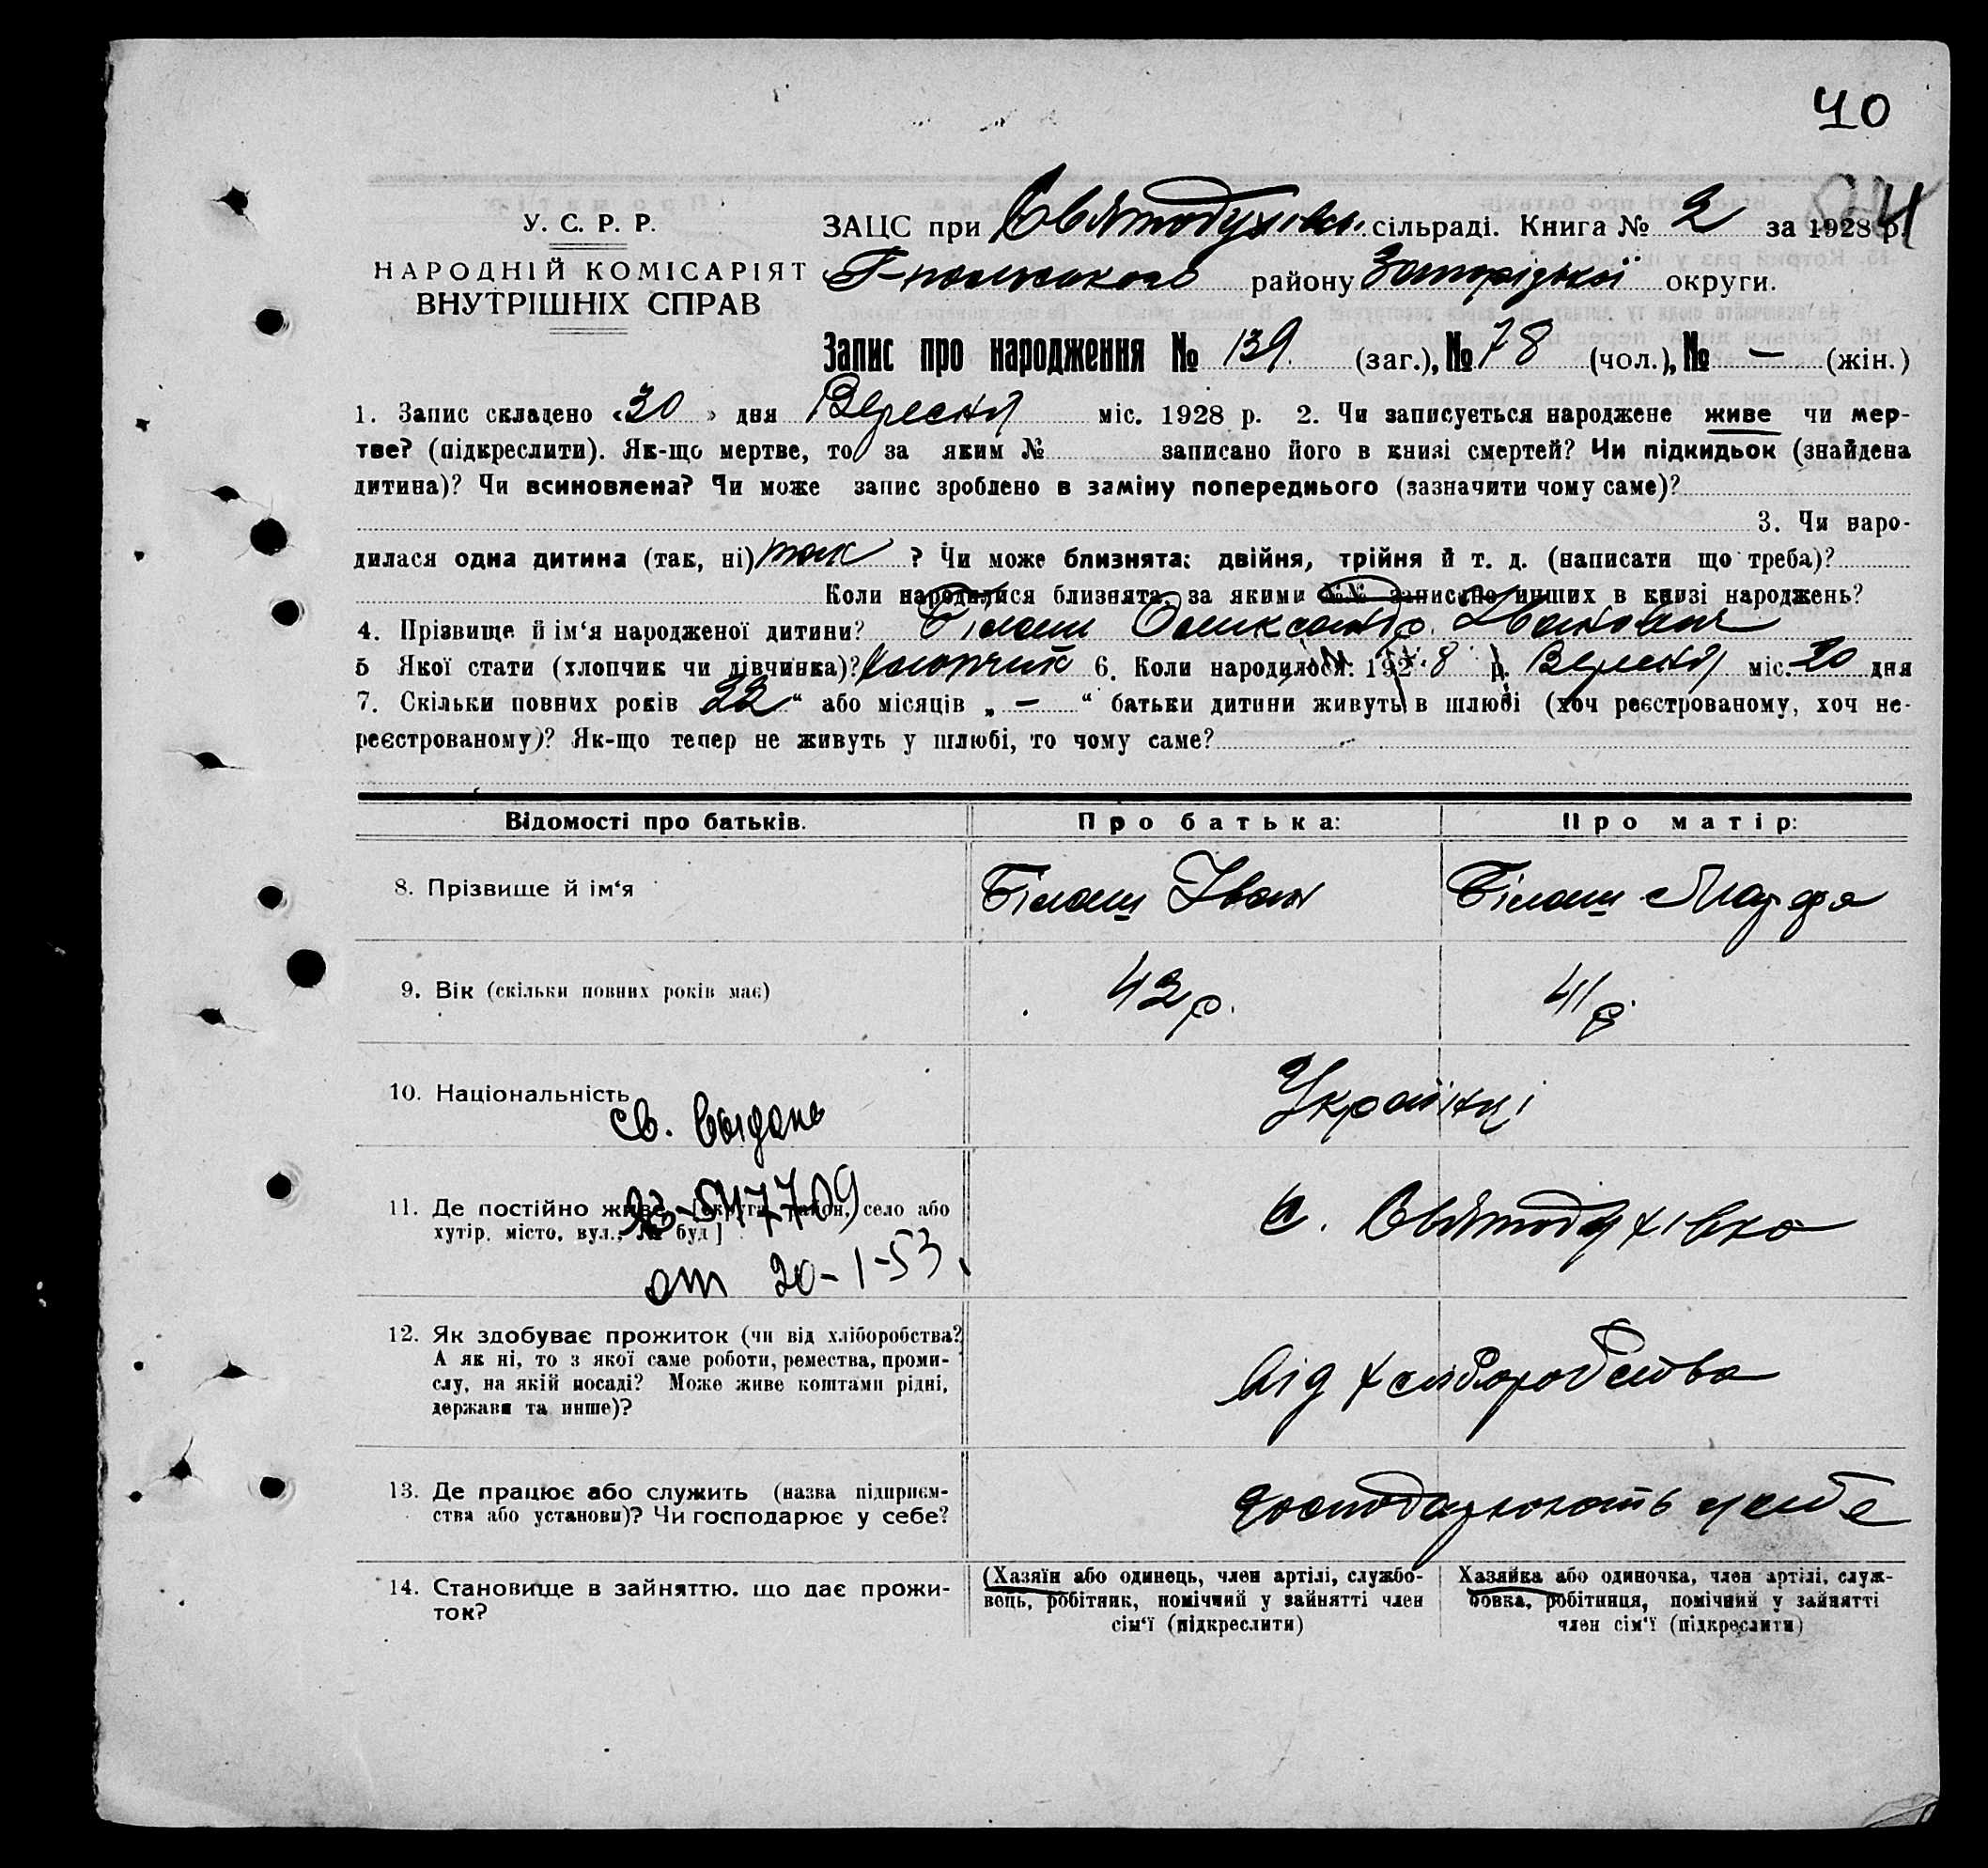 40
У. С. Р. Р.
НАРОДНІЙ КОМІСАРІЯТ
ВНУТРІШНІХ СПРАВ
ЗАЦС при Святодухівс. сільраді. Книга № 2 за 1928 р.
району Запоріжької округи.
Запис про народження № 139. (заг.), № 78 (чол.), № — (жін.)
1. Запис складено «30» дня Вересня міс. 1928 р. 2. Чи записується народжене живе чи мер-
тве? (підкреслити). Як-що мертве, то за яким № записано його в книзі смертей? Чи підкидьок (знайдена
дитина)? Чи всиновлена? Чи може запис зроблено в заміну попереднього (зазначити чому саме)?
3. Чи наро-
дилася одна дитина (так, ні) так ? Чи може близнята: двійня, трійня й т. д. (написати що треба)?
Коли народилися близнята, за якими №№ записано инших в книзі народжень?
4. Прізвище й ім‘я народженої дитини? Білаш Олександр. Іванович
5 Якої стати (хлопчик чи дівчинка)? Хлопчик 6. Коли народилося: 1928 р. Вересня міс. 20 дня
7. Скільки повних років 22 “ або місяців „ — “ батьки дитини живуть в шлюбі (хоч реєстрованому, хоч не-
реєстрованому)? Як-що тепер не живуть у шлюбі, то чому саме?
Відомості про батьків. Про батька: Про матір:
8. Прізвище й ім‘я Білаш Іван Білаш Марфа
9. Вік (скільки повних років має) 42 р. 41 р.
10. Національність Українці
св. выдано
11. Де постійно живе [округа, район, село або с. Святодухівка
хутір, місто, вул., № буд]
от 20-1-53.
12. Як здобуває прожиток (чи від хліборобства?
А як ні, то з якої саме роботи, ремества, проми-
слу, на якій посаді? Може живе коштами рідні, від хліборобства
держави та инше)?
13. Де працює або служить (назва підприєм-
ства або установи)? Чи господарює у себе? господарюють у себе
14. Становище в зайняттю, що дає прожи-
ток?
(Хазяїн або одинець, член артілі, службо-
вець, робітник, помічний у зайнятті член
сім‘ї (підкреслити)
Хазяйка або одиночка, член артілі, служ-
бовка, робітниця, помічний у зайнятті
член сім‘ї (підкреслити)